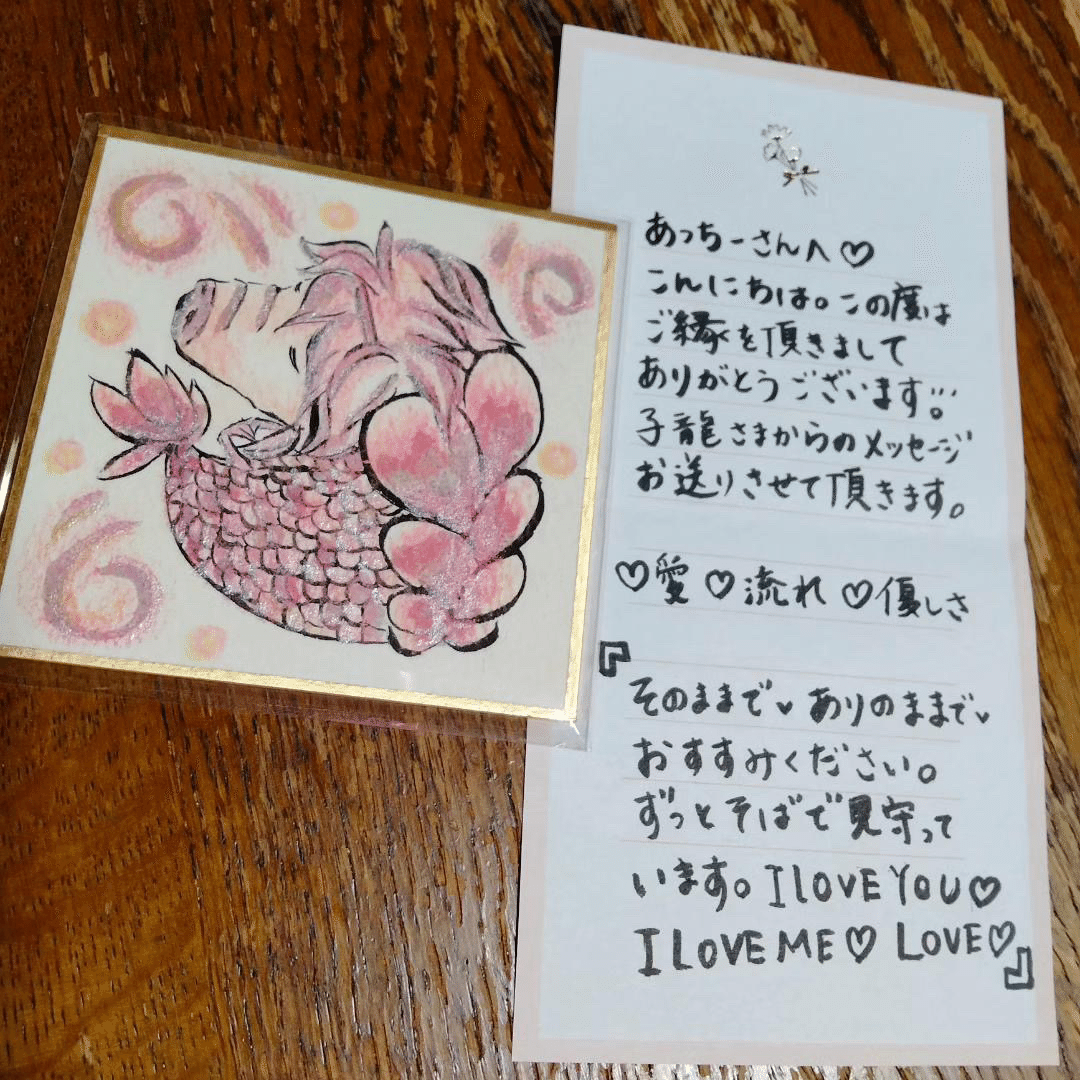 あっちーさんへ♡
こんにちは。この度は
ご縁を頂きまして
ありがとうございます!!!
子龍さまからのメッセージ
お送りさせて頂きます。
♡愛 ♡流れ ♡優しさ
『
そのままで♥ありのままで♥
おすすみください。
ずっとそばで見守って
います。I LOVE YOU♡
I LOVE ME♡ LOVE♡』